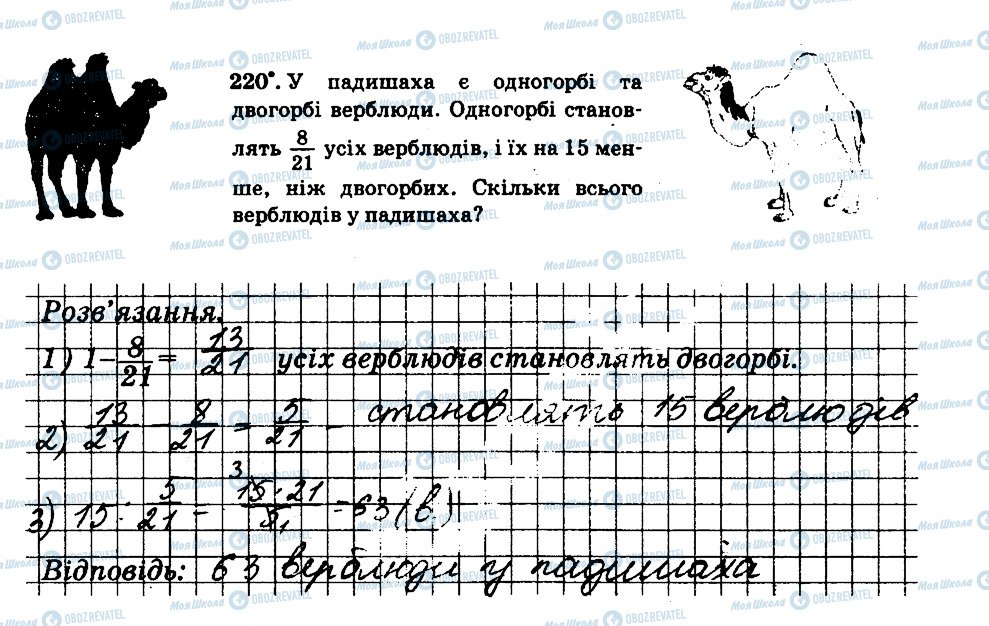 220°. У падишаха є одногорбі та
двогорбі верблюди. Одногорбі станов-
лять 8/21 усіх верблюдів, і їх на 15 мен-
ше, ніж двогорбих. Скільки всього
верблюдів у падишаха?
Розв'язання.
1) 1 - 8/21 = 13/21 усіх верблюдів становлять двогорбі.
2) 13/21 - 8/21 = 5/21 - становлять 15 верблюдів
3) 15 : 5/21 = 15·21/5 = 63 (в.)
Відповідь: 63 верблюди у падишаха
Моя Школа OBOZREVATEL